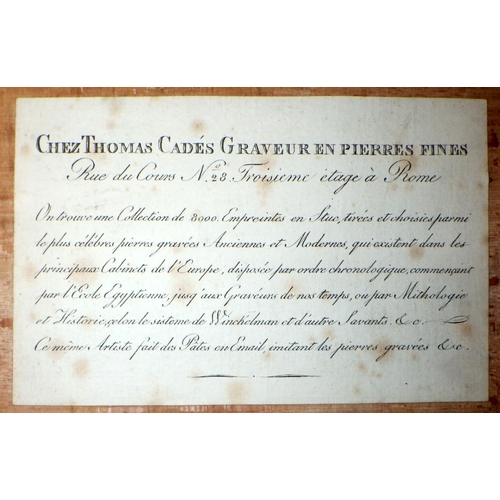 CHEZ THOMAS CADÉS GRAVEUR EN PIERRES FINES
Rue du Cours No. 28 Troisieme étage à Rome
On trouve une Collection de 8000. Empreintes en Stuc, tirées et choisies parmi
le plus célébres pierres gravées Anciennes et Modernes, qui existent dans les
principaux Cabinets de l'Europe, disposée par ordre chronologique, commençant
par l'Ecole Egyptienne, jusq'aux Graveurs de nos temps, ou par Mithologie
et Historie, selon le sisteme de Winchelman et d'autre Savants. &c.
Ce même Artiste fait des Pâtes en Email, imitant les pierres gravées &c.